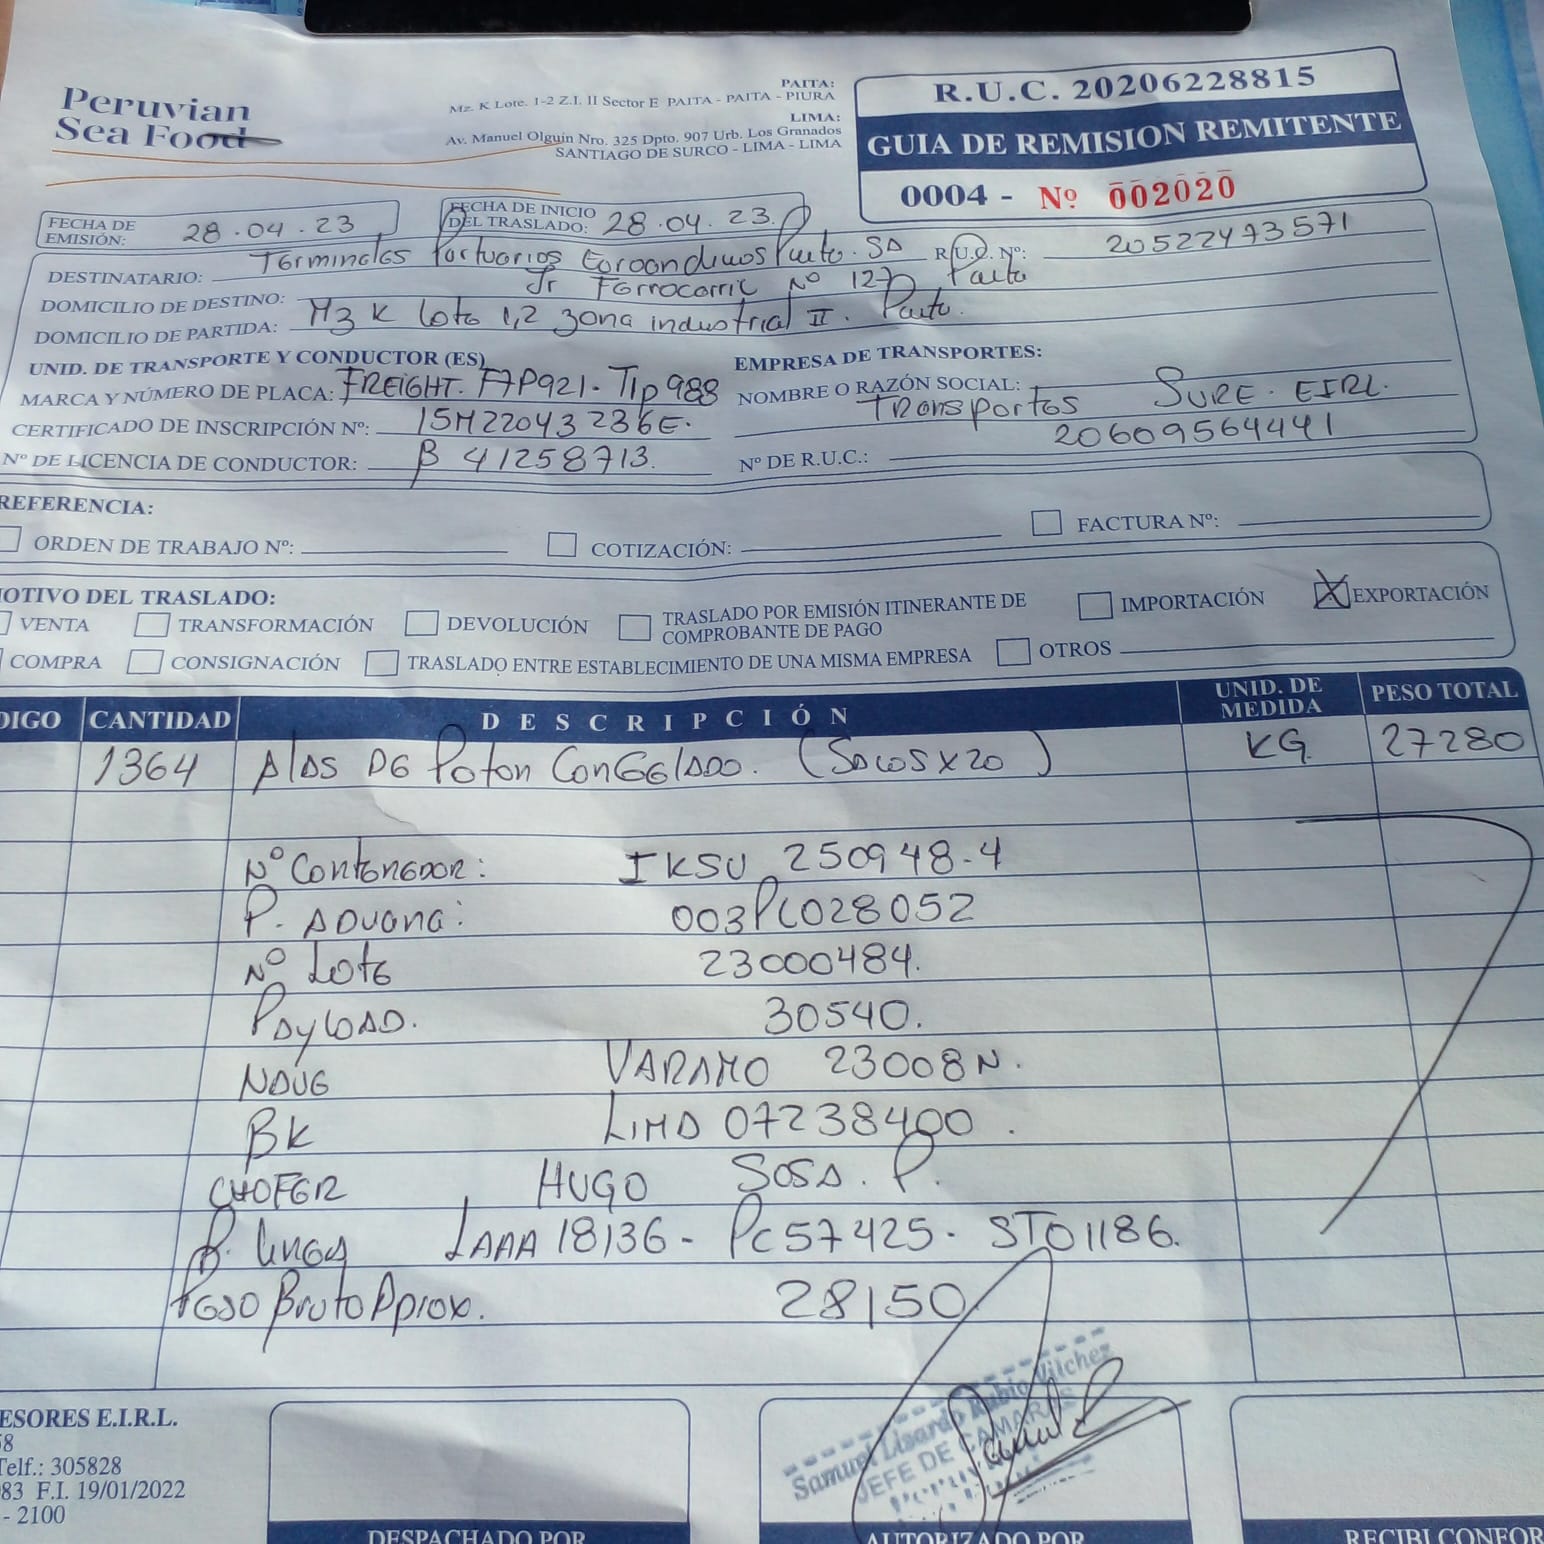 Peruvian
Sea Food
PAITA:
Mz. K Lote. 1-2 Z.I. II Sector E PAITA - PAITA - PIURA
LIMA:
Av. Manuel Olguin Nro. 325 Dpto. 907 Urb. Los Granados
SANTIAGO DE SURCO - LIMA - LIMA
R.U.C. 20206228815
GUIA DE REMISION REMITENTE
0004 - Nº 002020
FECHA DE EMISIÓN: 28.04.23
FECHA DE INICIO DEL TRASLADO: 28.04.23.
DESTINATARIO: Terminales Portuarios Euroandinos Paita. SA R.U.C. Nº: 20522473571
DOMICILIO DE DESTINO: Jr Ferrocarril Nº 127 Paita
DOMICILIO DE PARTIDA: Mz K lote 1,2 zona industrial II. Paita.
UNID. DE TRANSPORTE Y CONDUCTOR (ES)
MARCA Y NÚMERO DE PLACA: FREIGHT. F7P921 - T1P988
CERTIFICADO DE INSCRIPCIÓN Nº: 15M22043236E.
Nº DE LICENCIA DE CONDUCTOR: B 41258713.
EMPRESA DE TRANSPORTES:
NOMBRE O RAZÓN SOCIAL: Transportes SURE. EIRL.
Nº DE R.U.C.: 20609564441
REFERENCIA:
ORDEN DE TRABAJO Nº: COTIZACIÓN: FACTURA Nº:
OTIVO DEL TRASLADO:
VENTA TRANSFORMACIÓN DEVOLUCIÓN TRASLADO POR EMISIÓN ITINERANTE DE COMPROBANTE DE PAGO IMPORTACIÓN X EXPORTACIÓN
COMPRA CONSIGNACIÓN TRASLADO ENTRE ESTABLECIMIENTO DE UNA MISMA EMPRESA OTROS
DIGO CANTIDAD DESCRIPCIÓN UNID. DE MEDIDA PESO TOTAL
1364 Alas De Poton Congelado. (Sacos x 20) KG. 27280
Nº Contenedor: IKSU 250948-4
P. Aduana: 003PC028052
Nº Lote 23000484.
Payload. 30540.
Nave VARAMO 23008N.
BK LIMA 07238400.
CHOFER HUGO SOSA. P.
P. Linea LAAA18136 - PC57425. ST01186.
Peso Bruto Aprox. 28150
ESORES E.I.R.L.
58
Telf.: 305828
83 F.I. 19/01/2022
- 2100
Samuel Lisardo Rubio Vilchez
JEFE DE CAMARAS
DESPACHADO POR
AUTORIZADO POR
RECIBI CONFOR